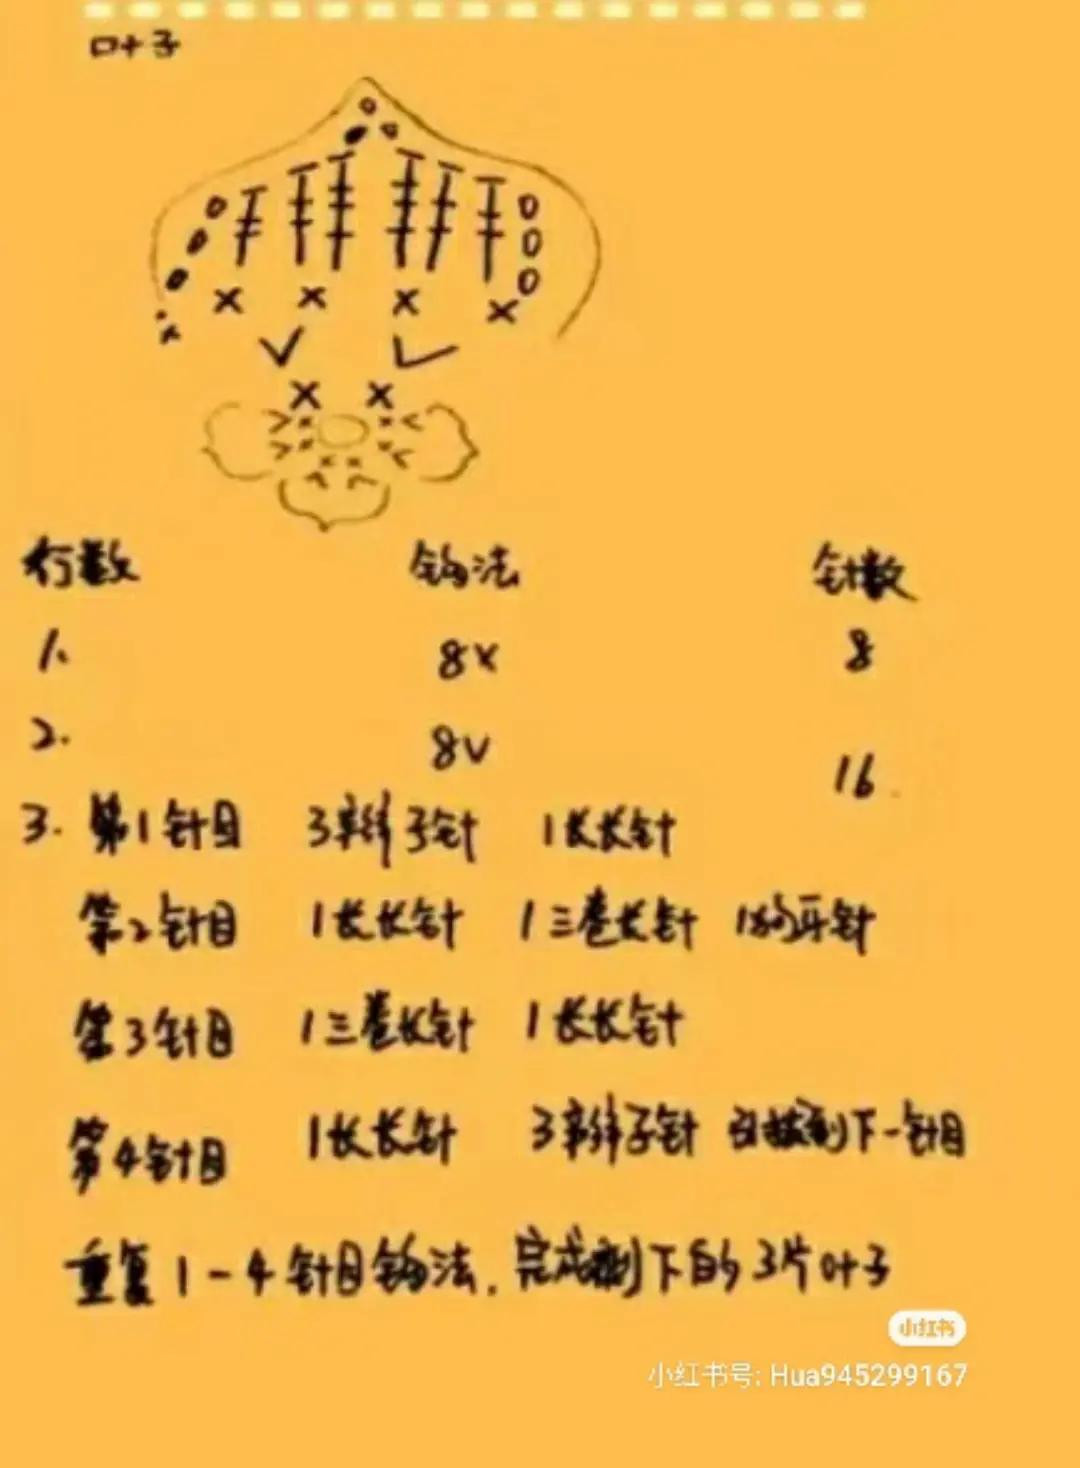 叶子
行数 钩法 针数
1. 8X 8
2. 8V 16.
3. 第1针目 3辫子针 1长长针
第2针目 1长长针 1三卷长针 1狗牙针
第3针目 1三卷长针 1长长针
第4针目 1长长针 3辫子针 引拔到下一针目
重复1-4针目钩法,完成剩下的3片叶子
小红书
小红书号: Hua945299167